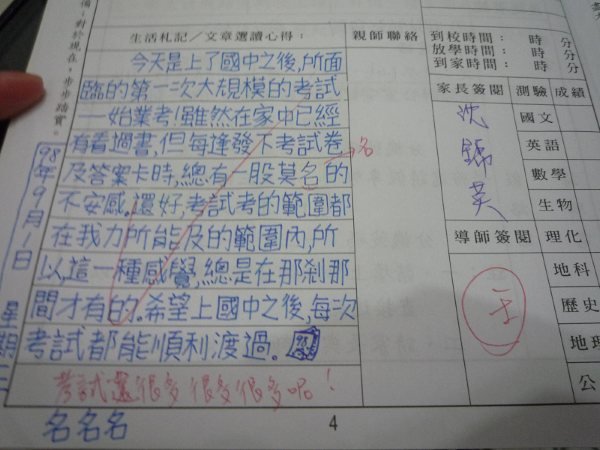 備，對於現在，步步踏實。
生活札記／文章選讀心得：
今天是上了國中之後，所面
臨的第一次大規模的考試
—始業考！雖然在家中已經
有看過書，但每逢發下考試卷
及答案卡時，總有一股莫名的
名
不安感，還好，考試考的範圍都
在我力所能及的範圍內，所
以，這一種感覺，總是在那剎那
間才有的。希望上國中之後，每次
考試都能順利渡過。
考試還很多很多很多呢！
名名名
98年9月1日 星期二
親師聯絡
到校時間： 時 分
放學時間： 時 分
到家時間： 時 分
家長簽閱 測驗 成績
國文
英語
數學
生物
導師簽閱 理化
地科
歷史
地理
公
4